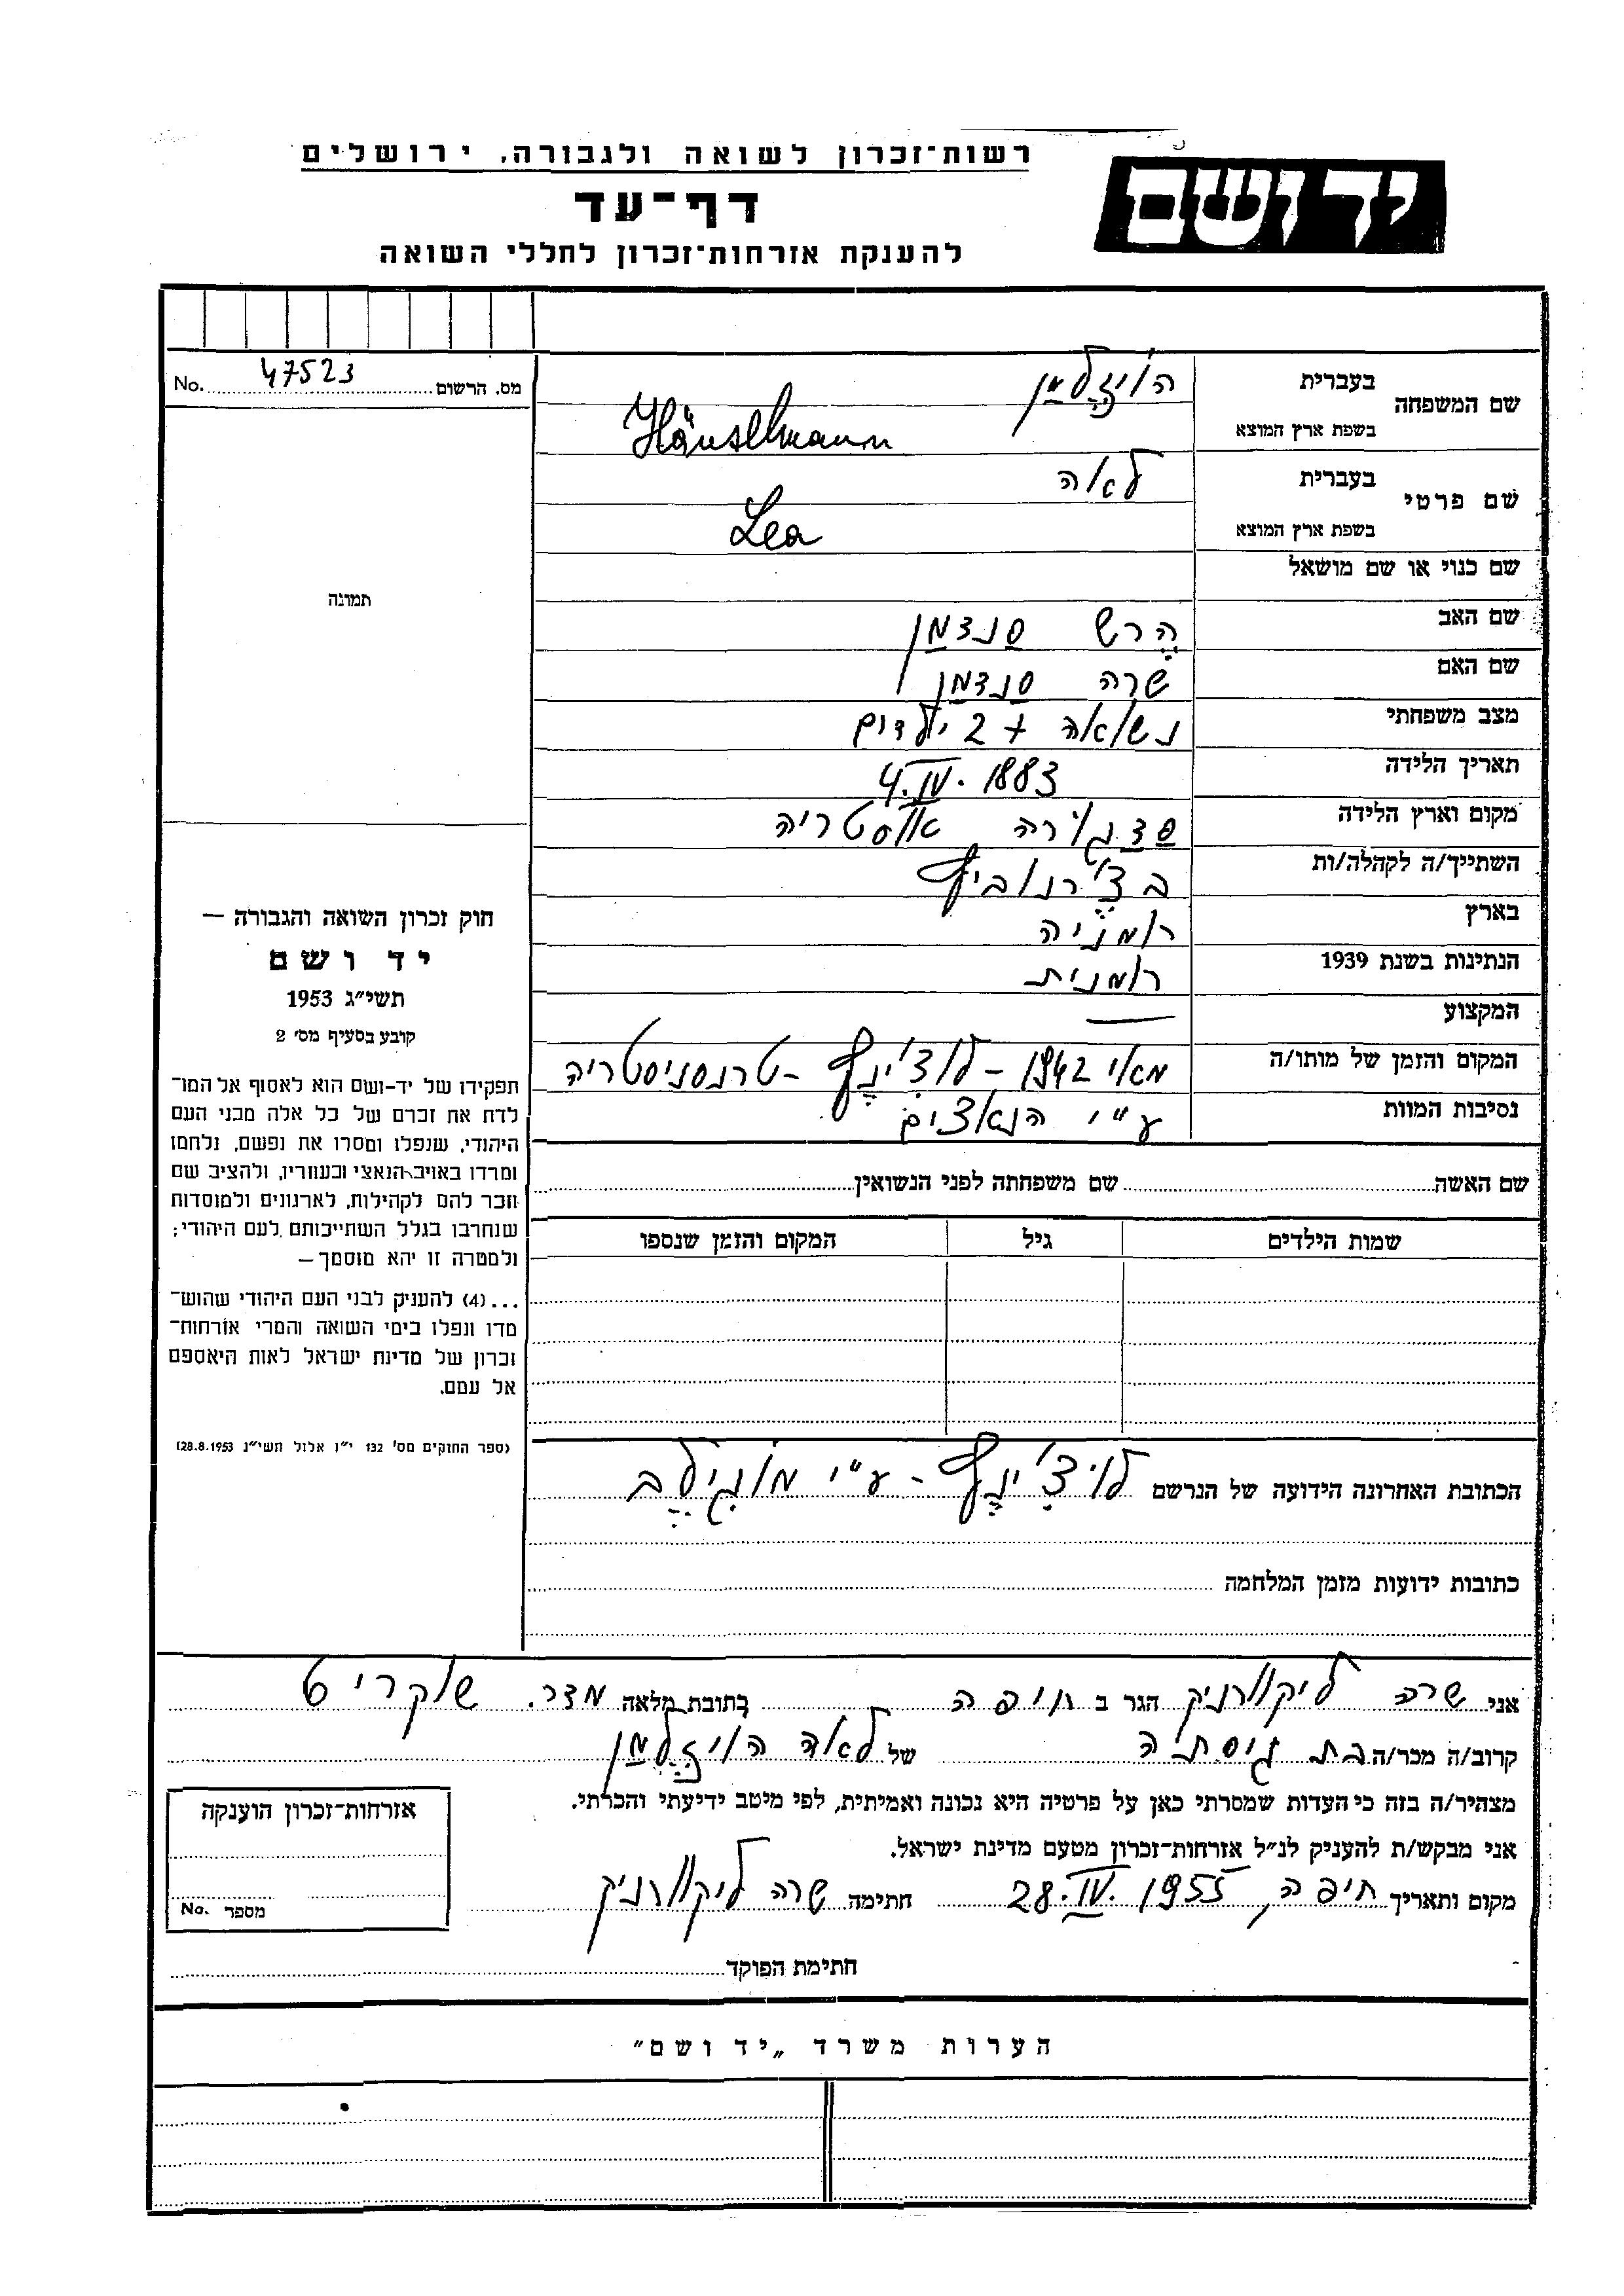 רשות־זכרון לשואה ולגבורה, ירושלים
יד ושם
דף־עד
להענקת אזרחות־זכרון לחללי השואה
מס. הרשום 47523 No.
תמונה
חוק זכרון השואה והגבורה —
יד ושם
תשי״ג 1953
קובע בסעיף מס׳ 2
תפקידו של יד-ושם הוא לאסוף אל המו־
לדת את זכרם של כל אלה מבני העם
היהודי, שנפלו ומסרו את נפשם, נלחמו
ומרדו באויב-הנאצי ובעוזריו, ולהציב שם
וזכר להם לקהילות, לארגונים ולמוסדות
שנחרבו בגלל השתייכותם לעם היהודי;
ולמטרה זו יהא מוסמך —
...(4) להעניק לבני העם היהודי שהוש־
מדו ונפלו בימי השואה והמרי אזרחות־
זכרון של מדינת ישראל לאות היאספם
אל עמם.
(ספר החוקים מס׳ 132 י״ז אלול תשי״ג 28.8.1953)
שם המשפחה
בעברית הויזלמן
בשפת ארץ המוצא Häuselmann
שם פרטי
בעברית לאה
בשפת ארץ המוצא Lea
שם כנוי או שם מושאל
שם האב הרש סנדמן
שם האם שרה סנדמן
מצב משפחתי נשואה + 2 ילדים
תאריך הלידה 4.IV.1883
מקום וארץ הלידה סדגורה אוסטריה
השתייך/ה לקהלה/ות בצ׳רנוביץ
בארץ רומניה
הנתינות בשנת 1939 רומנית
המקצוע —
המקום והזמן של מותו/ה מאי 1942 - לוצ׳ינץ - טרנסניסטריה
נסיבות המוות ע״י הנאצים
שם האשה שם משפחתה לפני הנשואין
שמות הילדים גיל המקום והזמן שנספו
הכתובת האחרונה הידועה של הנרשם לוצ׳ינץ - ע״י מוגילב
כתובות ידועות מזמן המלחמה
אני שרה ליקוורניק הגר ב חיפה כתובת מלאה מצדר. שוקרי 6
קרוב/ה מכר/ה בת גיסתה של לאה הויזלמן
מצהיר/ה בזה כי העדות שמסרתי כאן על פרטיה היא נכונה ואמיתית, לפי מיטב ידיעתי והכרתי.
אני מבקש/ת להעניק לנ״ל אזרחות־זכרון מטעם מדינת ישראל.
מקום ותאריך חיפה, 28.IV.1955 חתימה שרה ליקוורניק
אזרחות־זכרון הוענקה
מספר No.
חתימת הפוקד
הערות משרד „יד ושם״